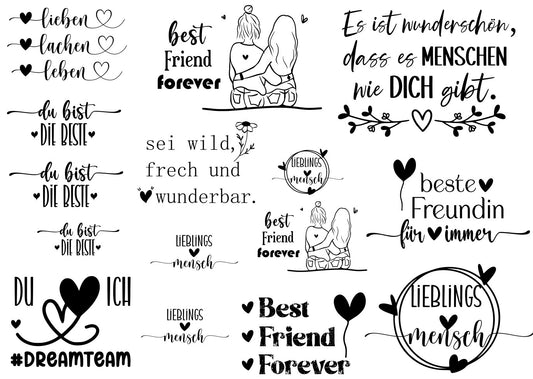 lieben
lachen
leben
best
Friend
forever
Es ist wunderschön,
dass es MENSCHEN
wie DICH gibt.
du bist
DIE BESTE
sei wild,
frech und
wunderbar.
LIEBLINGS
mensch
du bist
DIE BESTE
beste
Freundin
für immer
du bist
DIE BESTE
LIEBLINGS
mensch
best
Friend
forever
DU ICH
#DREAMTEAM
LIEBLINGS
mensch
Best
Friend
Forever
LIEBLINGS
mensch